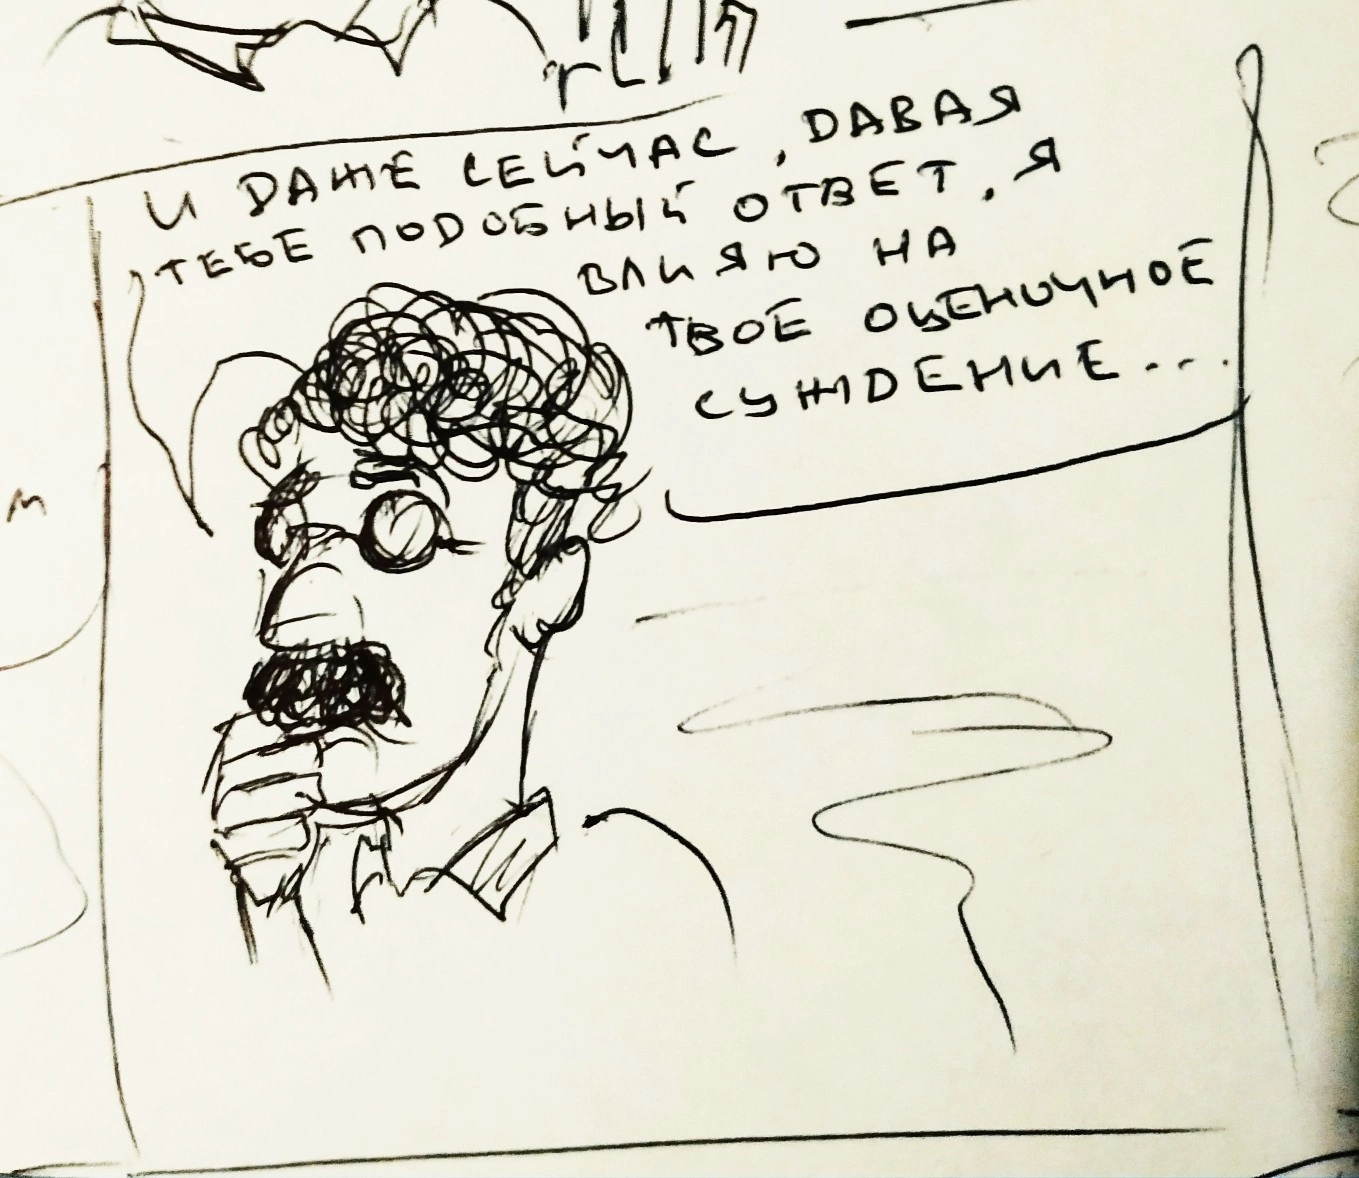 И ДАЖЕ СЕЙЧАС, ДАВАЯ
ТЕБЕ ПОДОБНЫЙ ОТВЕТ, Я
ВЛИЯЮ НА
ТВОЕ ОЦЕНОЧНОЕ
СУЖДЕНИЕ...